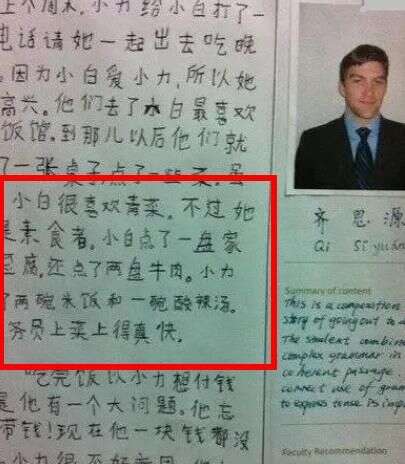 上个周末,小力给小白打了一
电话请她一起出去吃晚
。因为小白爱小力,所以她
高兴。他们去了小白最喜欢
饭馆。到那儿以后他们就
了一张桌子,点了一些菜。虽
小白很喜欢青菜。不过她
是素食者。小白点了一盘家
豆腐,还点了两盘牛肉。小力
了两碗米饭和一碗酸辣汤。
务员上菜上得真快。
吃完饭以小力想付钱
是他有一个大问题。他忘
带钱!现在他一块钱都没
小力很不好意思。他
齐思源
Qi Sī yuán
Summary of content
This is a composition
story of going out to
The student combine
complex grammar in
coherent passage.
correct use of gram
to express tense is imp
Faculty Recommendation